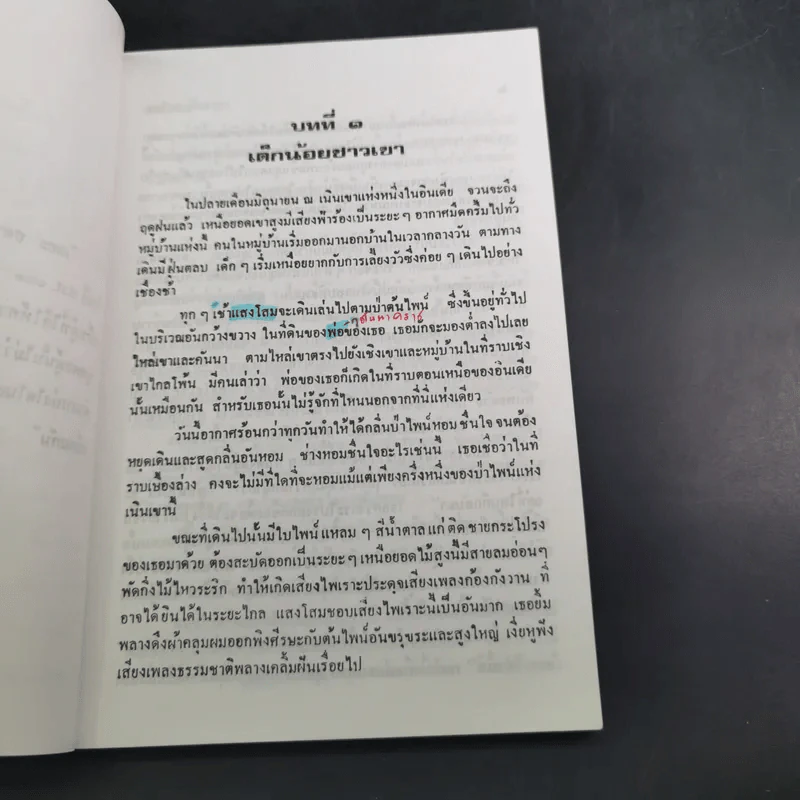 บทที่ ๑
เด็กน้อยชาวเขา
ในปลายเดือนมิถุนายน ณ เนินเขาแห่งหนึ่งในอินเดีย จวนจะถึง
ฤดูฝนแล้ว เหนือยอดเขาสูงมีเสียงฟ้าร้องเป็นระยะๆ อากาศมืดครึ้มไปทั่ว
หมู่บ้านแห่งนี้ คนในหมู่บ้านเริ่มออกมานอกบ้านในเวลากลางวัน ตามทาง
เดินมีฝุ่นตลบ เด็กๆ เริ่มเหนื่อยยากกับการเลี้ยงวัวซึ่งค่อยๆ เดินไปอย่าง
เชื่องช้า
ทุกๆ เช้าแสงโสมจะเดินเล่นไปตามป่าต้นไพน์ ซึ่งขึ้นอยู่ทั่วไป
ในบริเวณอันกว้างขวาง ในที่ดินของพ่อของเธอ เธอมักจะมองต่ำลงไปเลย
ไหล่เขาและคันนา ตามไหล่เขาตรงไปยังเชิงเขาและหมู่บ้านในที่ราบเชิง
เขาไกลโพ้น มีคนเล่าว่า พ่อของเธอก็เกิดในที่ราบตอนเหนือของอินเดีย
นั้นเหมือนกัน สำหรับเธอนั้นไม่รู้จักที่ไหนนอกจากที่นี่แห่งเดียว
วันนี้อากาศร้อนกว่าทุกวันทำให้ได้กลิ่นป่าไพน์หอมชื่นใจ จนต้อง
หยุดเดินและสูดกลิ่นอันหอม ช่างหอมชื่นใจอะไรเช่นนี้ เธอเชื่อว่าในที่
ราบเบื้องล่าง คงจะไม่มีที่ใดที่จะหอมแม้แต่เพียงครึ่งหนึ่งของป่าไพน์แห่ง
เนินเขานี้
ขณะที่เดินไปนั้นมีใบไพน์แหลมๆ สีน้ำตาลแก่ ติดชายกระโปรง
ของเธอมาด้วย ต้องสะบัดออกเป็นระยะๆ เหนือยอดไม้สูงนี้มีสายลมอ่อนๆ
พัดกิ่งไม้ไหวระริก ทำให้เกิดเสียงไพเราะประดุจเสียงเพลงก้องกังวาน ที่
อาจได้ยินได้ในระยะไกล แสงโสมชอบเสียงไพเราะนี้เป็นอันมาก เธอยิ้ม
พลางดึงผ้าคลุมผมออกพิงศีรษะกับต้นไพน์อันขรุขระและสูงใหญ่ เงี่ยหูฟัง
เสียงเพลงธรรมชาติพลางเคลิ้มฝันเรื่อยไป